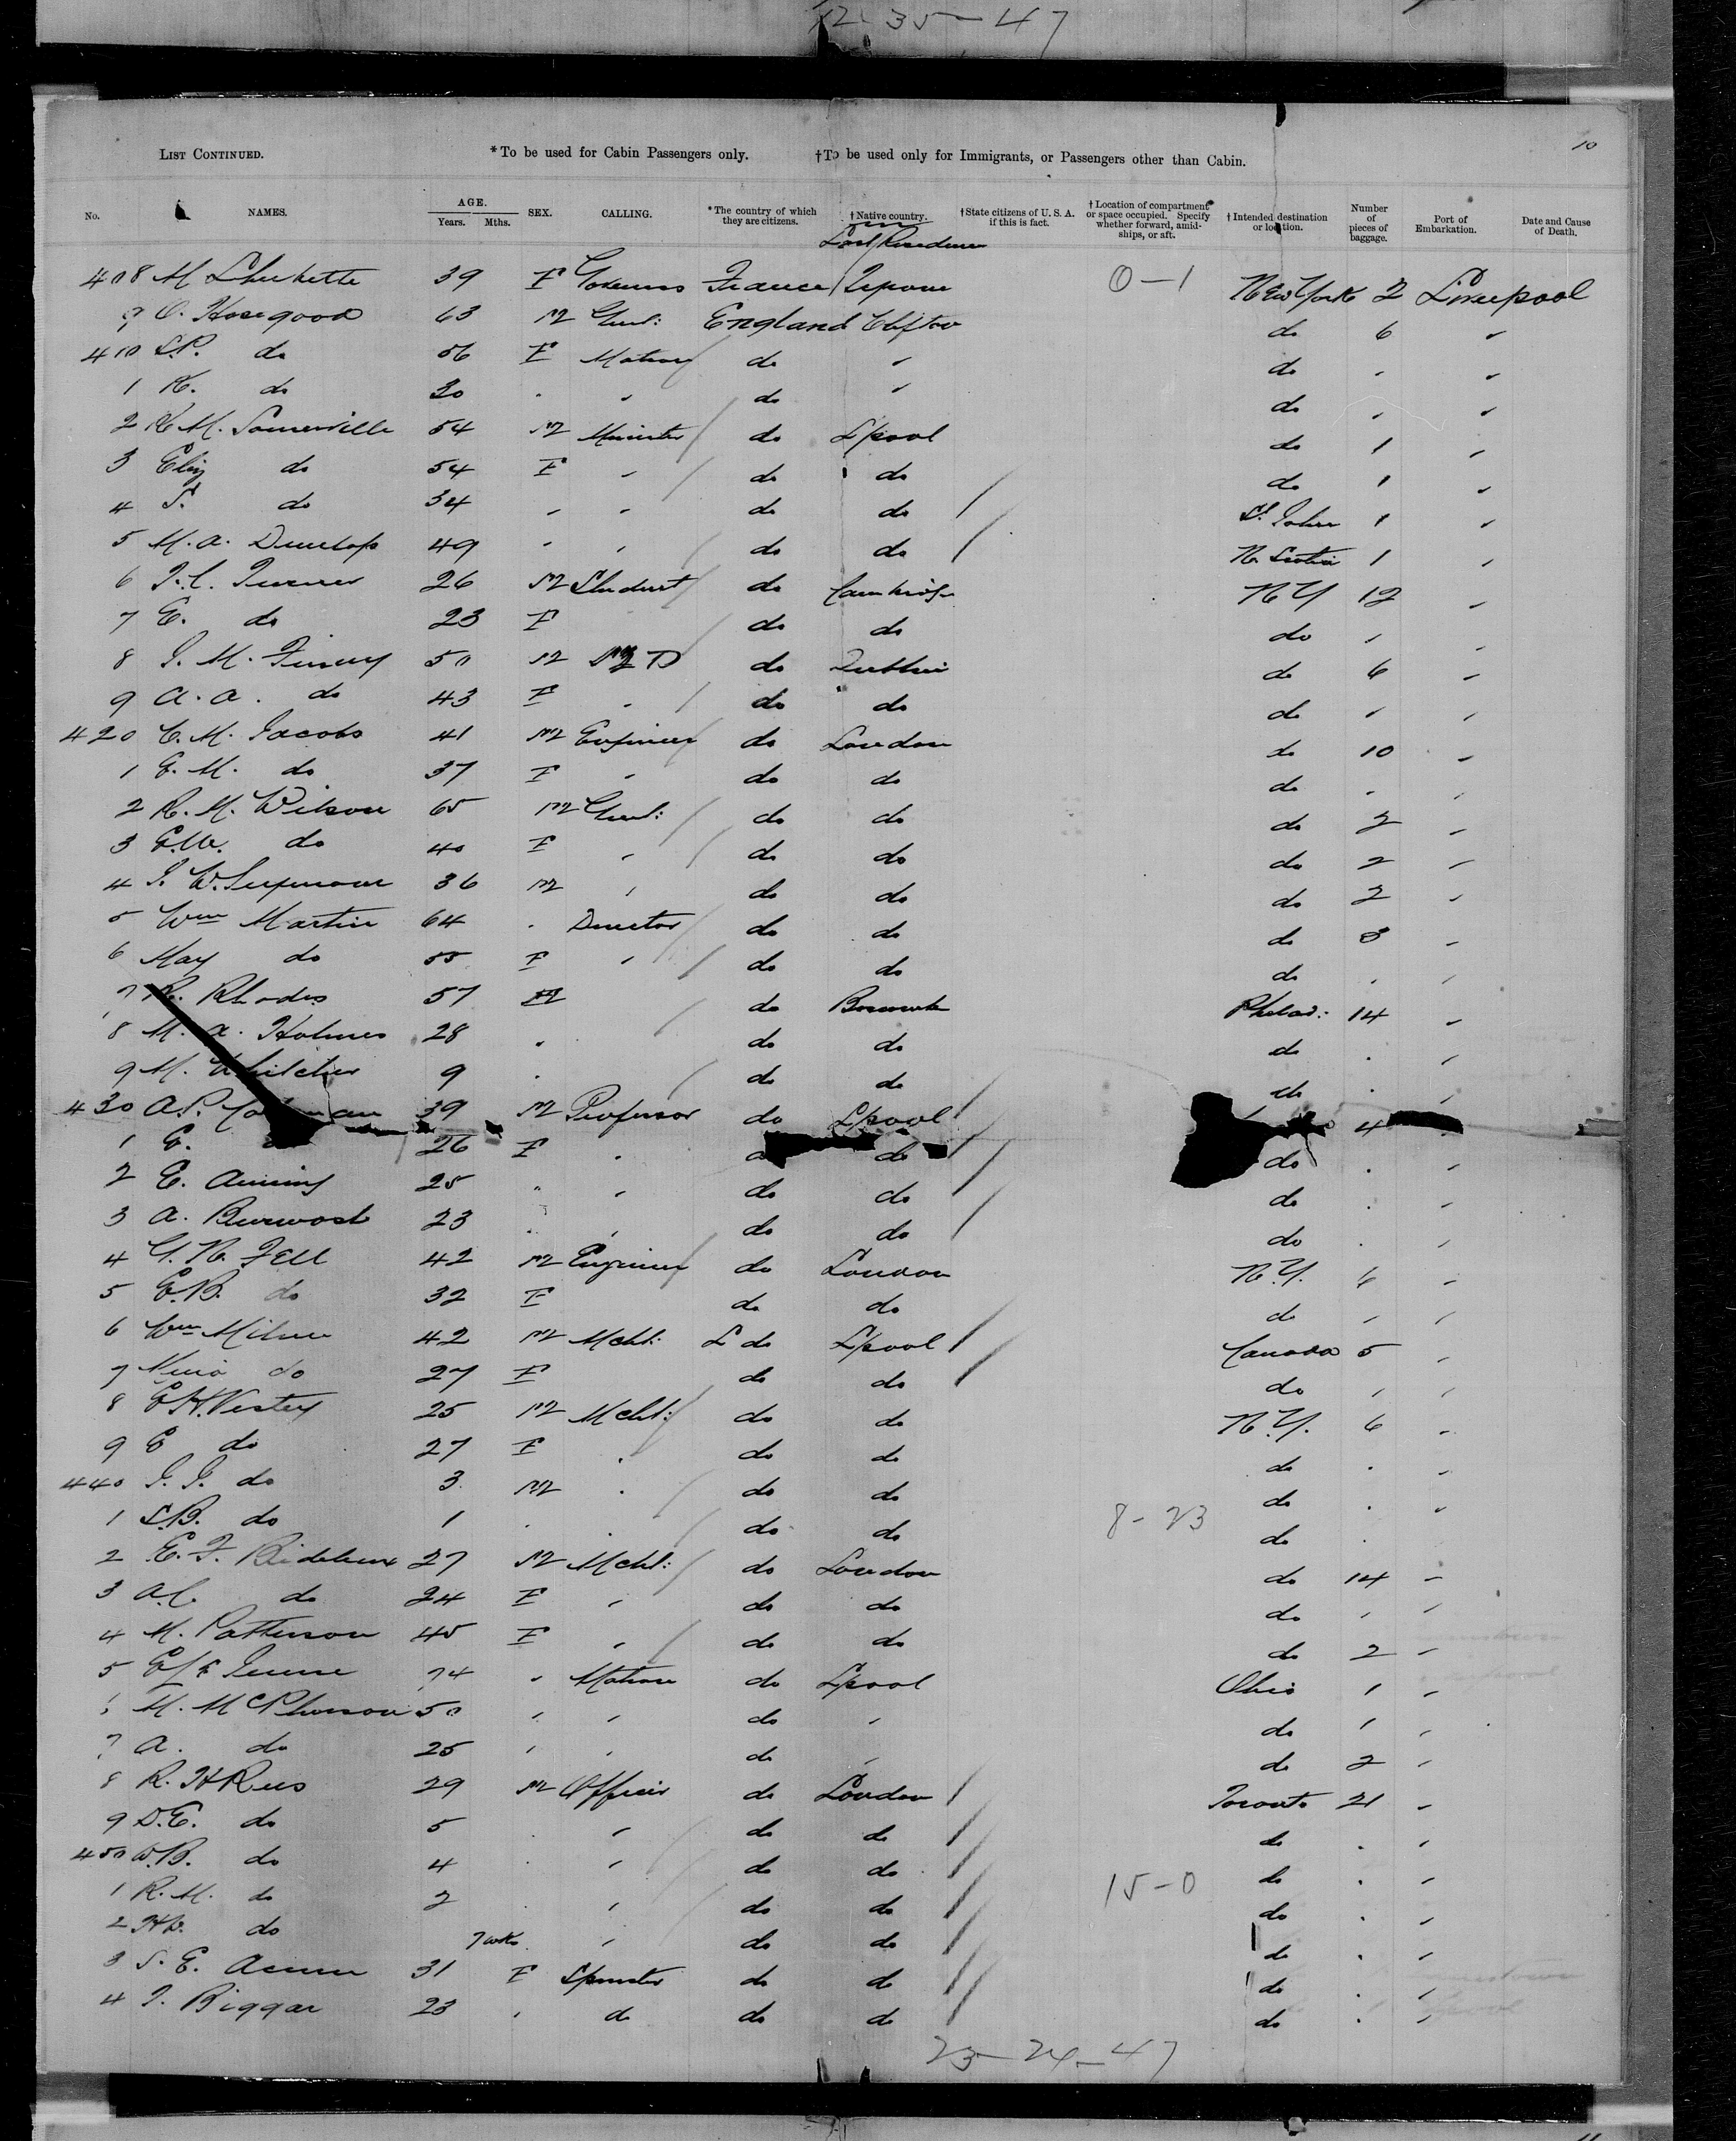 12-35-47
LIST CONTINUED. *To be used for Cabin Passengers only. †To be used only for Immigrants, or Passengers other than Cabin. 10
No. NAMES. AGE. Years. Mths. SEX. CALLING. *The country of which they are citizens. †Native country. †State citizens of U. S. A. if this is fact. †Location of compartment or space occupied. Specify whether forward, amidships, or aft. †Intended destination or location. Number of pieces of baggage. Port of Embarkation. Date and Cause of Death.
Last Residence
408 M 39 F France 0-1 New York 2 Liverpool
9 O. Hosegood 63 M Gent: England Clifton do 6 "
410 S.P. do 56 F Matron do " do " "
1 K. do 30 " " do " do " "
2 M. Somerville 54 M Minister do L'pool do 1 "
3 Eliz do 54 F " do do do 1 "
4 S. do 34 " " do do St. John 1 "
5 M. A. Dunlop 49 " " do do N. Scotia 1 "
6 Turner 26 M Student do Cambridge NY 12 "
7 E. do 23 F do do do " "
8 J. M. Finny 50 M MD do Dublin do 6 "
9 A. A. do 43 F " do do do " "
420 C. M. Jacobs 41 M Engineer do London do 10 "
1 E. M. do 37 F " do do do " "
2 R. M. Wilson 65 M Gent: do do do 2 "
3 E.W. do 40 F " do do do 2 "
4 J. W. 36 M " do do do 2 "
5 Wm Martin 64 " Director do do do 3 "
6 May do 55 F " do do do " "
7 R. Rhodes 57 do Philad: 14 "
8 M. A. Holmes 28 " do do do " "
9 M. 9 " do do do " "
430 A.P. 39 M Professor do L'pool 4 "
1 E. 26 F " do do do " "
2 E. 25 " " do do do " "
3 A. Burwash 23 " " do do do " "
4 G. N. Fell 42 M Engineer do London N.Y. 6 "
5 E.B. do 32 F do do do " "
6 Wm Milne 42 M Mcht: do L'pool Canada 5 "
7 do 27 F do do do " "
8 E H. Vestey 25 M Mcht: do do N.Y. 6 "
9 E do 27 F " do do do " "
440 J. J. do 3 M " do do do " "
1 S.B. do 1 " " do do 8-23 do "
2 E. F. 27 M Mcht: do London do 14 "
3 A.C. do 24 F " do do do " "
4 M. Patterson 45 F " do do do 2 "
5 74 " Matron do L'pool Ohio 1 "
6 M. McPherson 50 " " do " do 1 "
7 A. do 25 " " do " do 2 "
8 R. H Rees 29 M Officer do London Toronto 21 "
9 D.E. do 5 " " do do do " "
450 W.B. do 4 " " do do 15-0 do " "
1 R. M. do 2 " " do do do " "
2 do 7 wks " do do do " "
3 S. E. 31 F Spinster do do do " "
4 J. Biggar 23 " do do do do " "
23-24-47